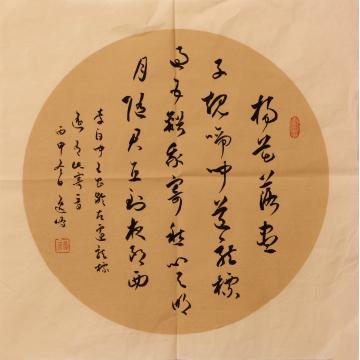 杨花落尽
子规啼闻道龙标
过五溪我寄愁心与明
月随君直到夜郎西
李白闻王昌龄左迁龙标
遥有此寄一首
丙申冬日